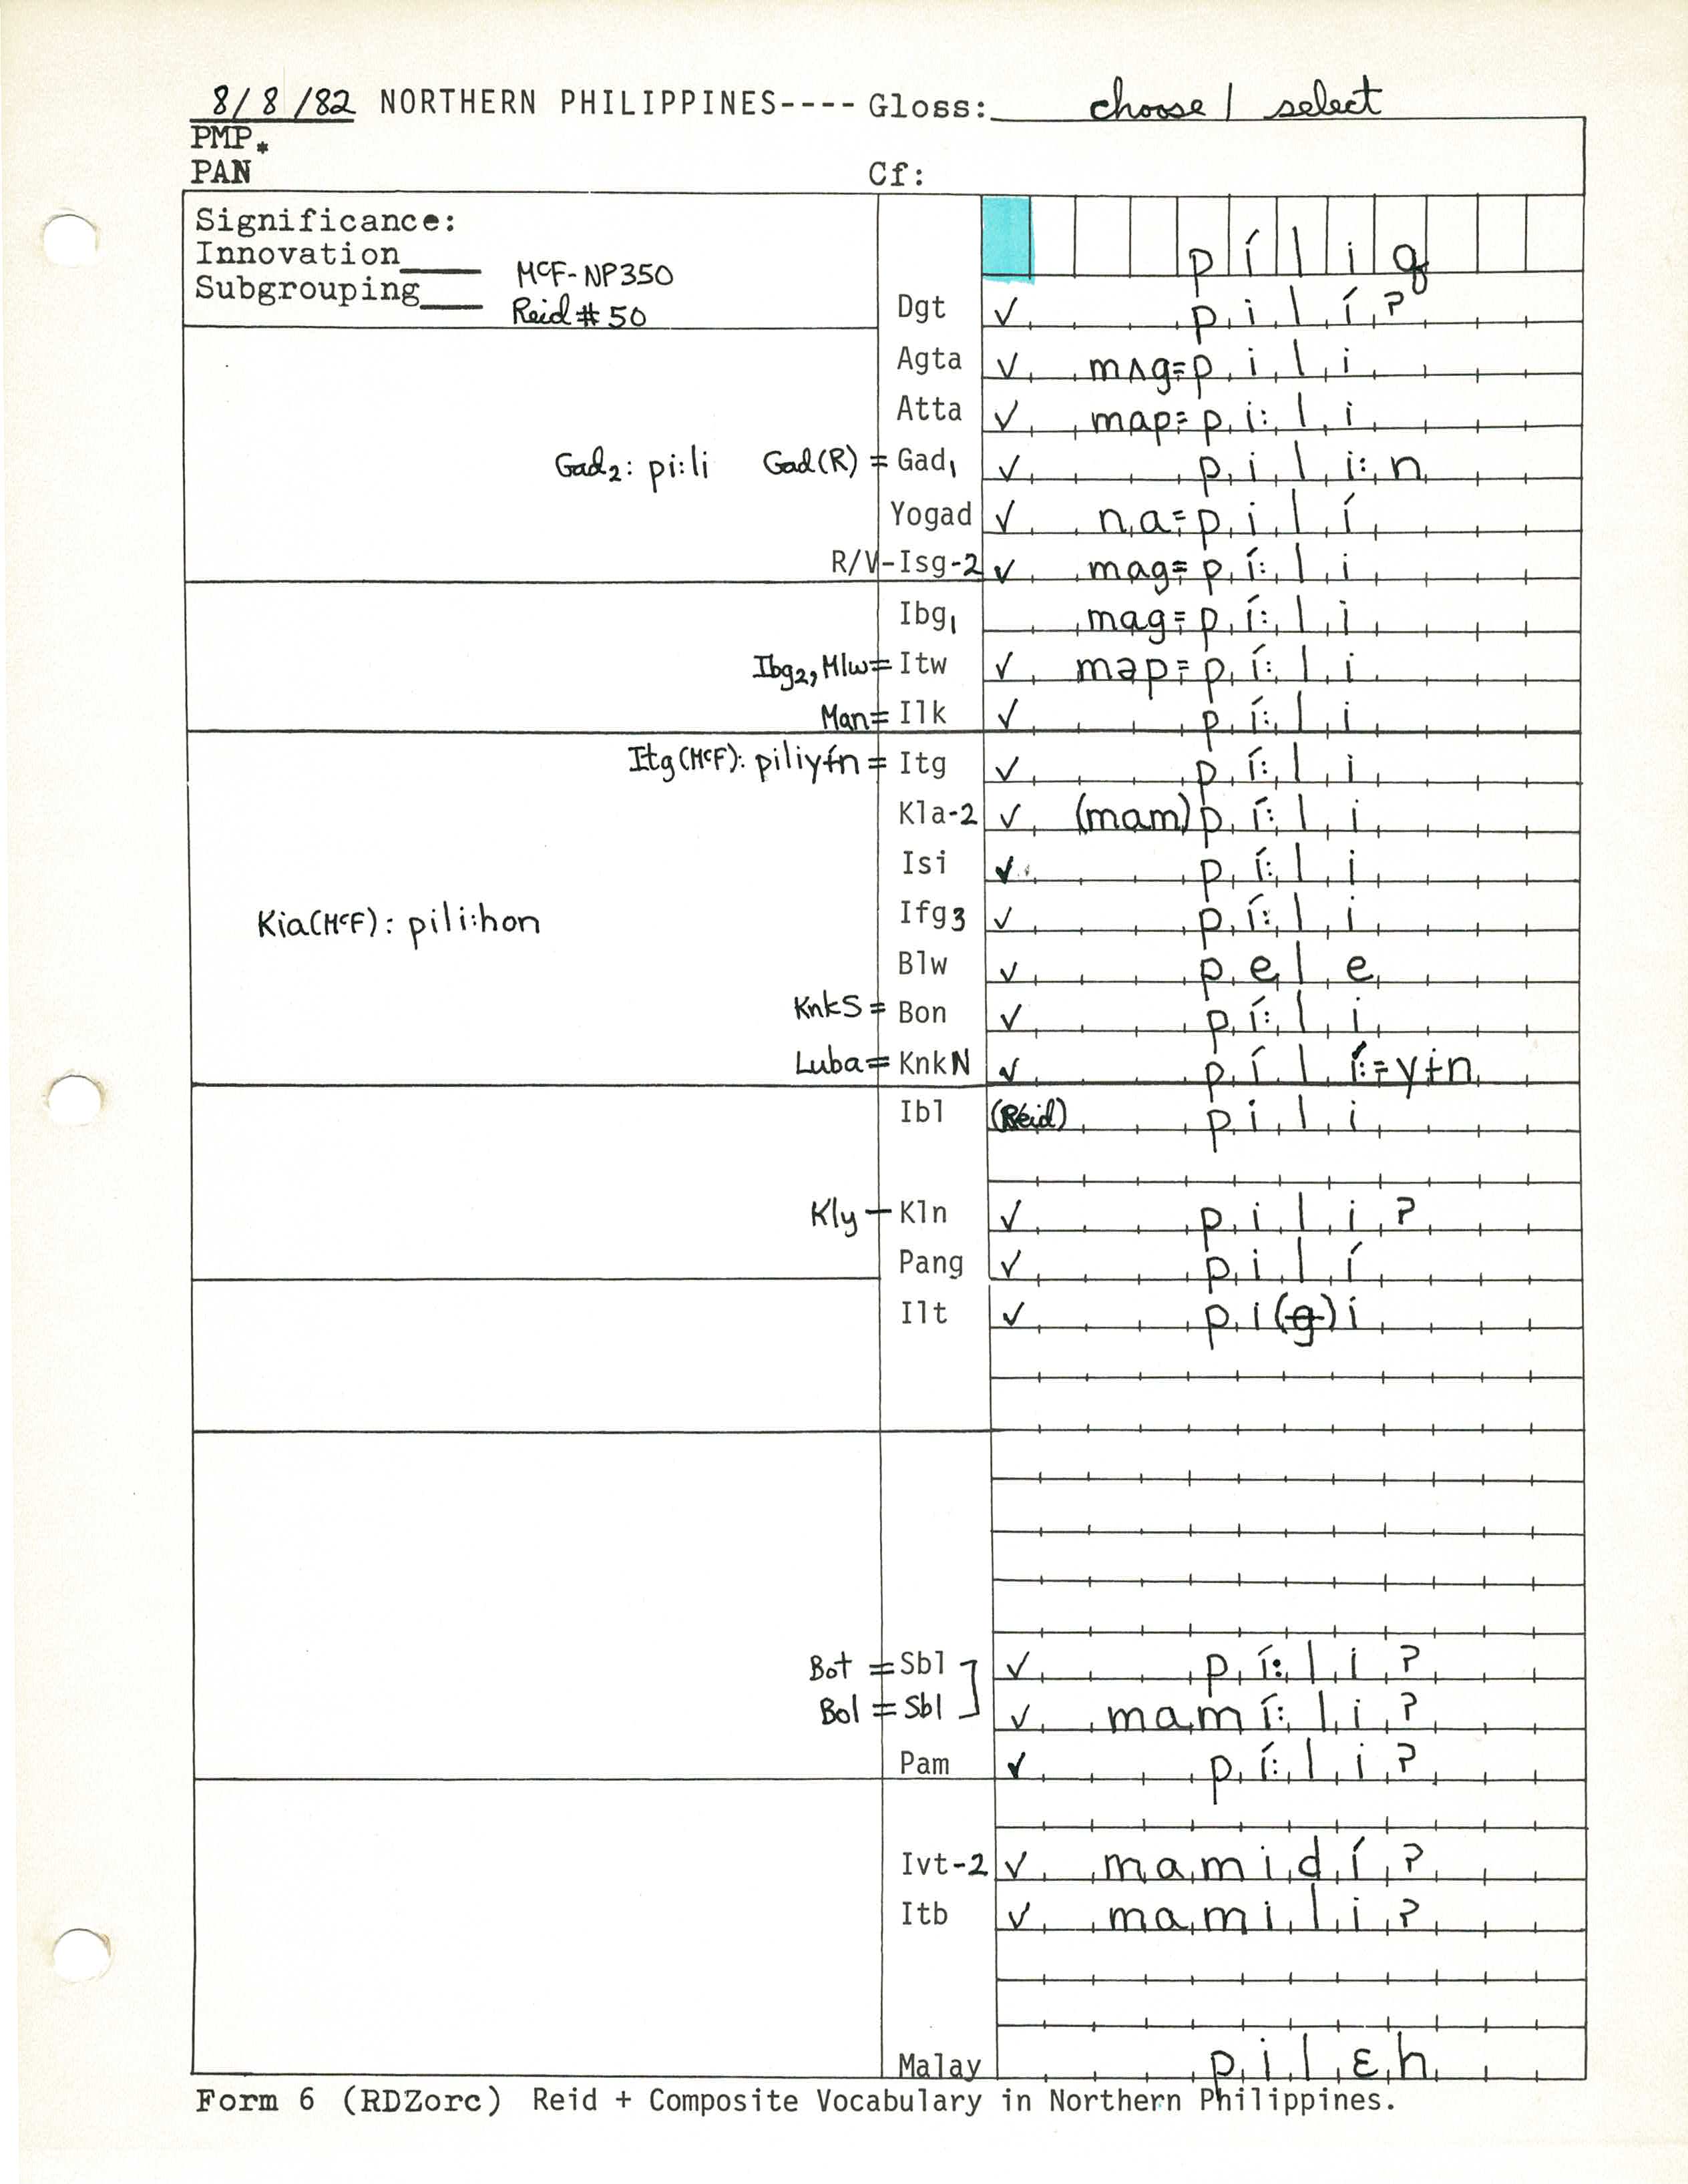 8/8/82 NORTHERN PHILIPPINES---- Gloss: choose / select
PMP*
PAN Cf:
Significance:
Innovation____ McF-NP350
Subgrouping____ Reid #50
pílig
Dgt ✓ pilíʔ
Agta ✓ mʌg=pili
Atta ✓ map=pi:li
Gad2: pi:li Gad(R) = Gad1 ✓ pili:n
Yogad ✓ na=pilí
R/V-Isg-2 ✓ mag=pí:li
Ibg1 mag=pí:li
Ibg2, Mlw = Itw ✓ məp=pí:li
Man = Ilk ✓ pí:li
Itg (McF): piliyɨ́n = Itg ✓ pí:li
Kla-2 ✓ (mam)pí:li
Isi ✓ pí:li
Kia (McF): pili:hon
Ifg3 ✓ pí:li
Blw ✓ pele
KnkS = Bon ✓ pí:li
Luba = KnkN ✓ pílí:=yɨn
Ibl (Reid) pili
Kly — Kln ✓ piliʔ
Pang ✓ pilí
Ilt ✓ pi(g)i
Bot = Sbl ✓ pí:liʔ
Bol = Sbl ✓ mamí:liʔ
Pam ✓ pí:liʔ
Ivt-2 ✓ mamidíʔ
Itb ✓ mamiliʔ
Malay pilɛh
Form 6 (RDZorc) Reid + Composite Vocabulary in Northern Philippines.